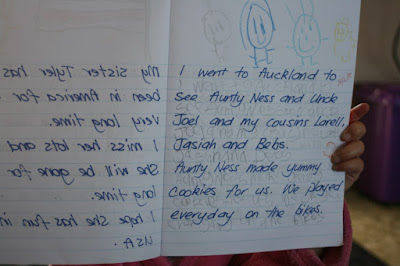 My sister Tyler has
been in America for
very long time.
I miss her lots and
She will be gone for
long time.
I hope she has fun in
U.S.A.
I went to Auckland to
see Aunty Ness and Uncle
Joel and my cousins Larell,
Jasiah and Bebs.
Aunty Ness made yummy
cookies for us. We played
everyday on the bikes.